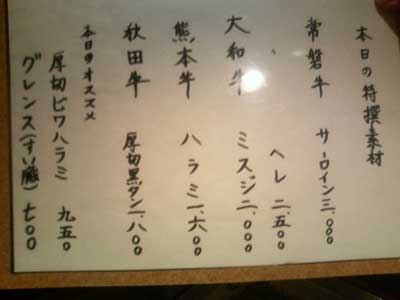 本日の特撰素材
常磐牛 サーロイン三、000
〃 ヘレ 二、五00
大和牛 ミスジ二、000
熊本牛 ハラミ一、六00
秋田牛 厚切黒タン一、八00
本日のオススメ
厚切ビワハラミ 九五0
グレンス(すい臓) 七00